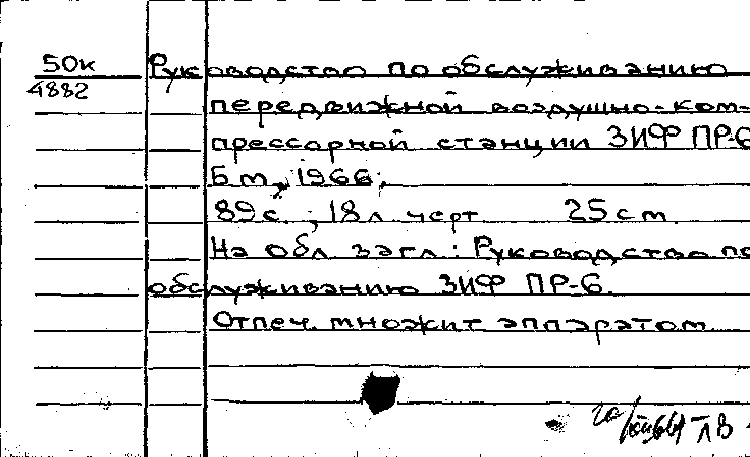 50к Руководство по обслуживанию
4882
передвижной воздушно-ком-
прессорной станции ЗИФ ПР-6
Б.м., 1966,
89с., 18л черт 25см
На обл. загл.: Руководство по
обслуживанию ЗИФ ПР-6.
Отпеч. множит аппаратом